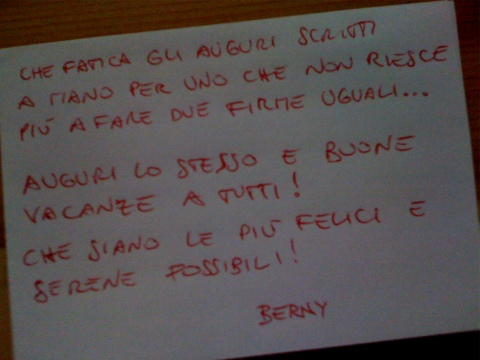 CHE FATICA GLI AUGURI SCRITTI
A MANO PER UNO CHE NON RIESCE
PIÙ A FARE DUE FIRME UGUALI...
AUGURI LO STESSO E BUONE
VACANZE A TUTTI!
CHE SIANO LE PIÙ FELICI E
SERENE POSSIBILI!
BERNY